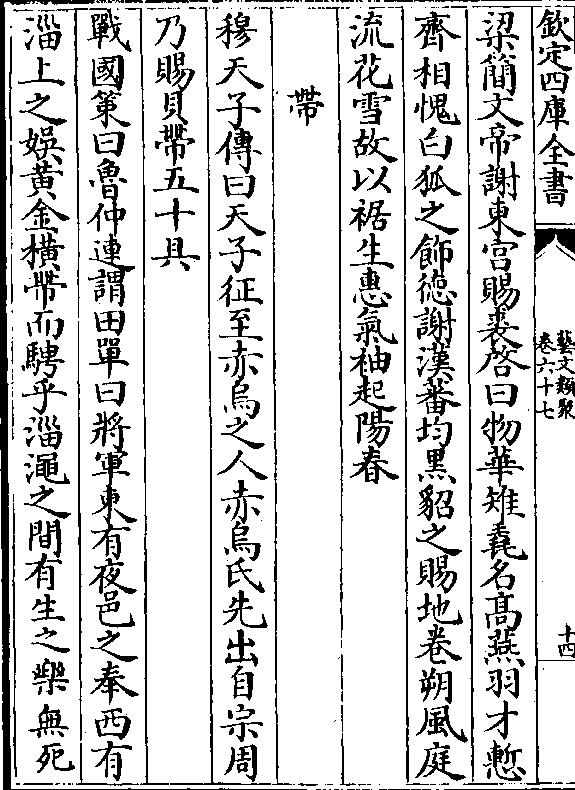 欽定四庫全書
藝文類聚
卷六十七
十四
梁簡文帝謝東宫賜裘啓曰物華雉毳名髙燕羽才慙
齊相愧白狐之飾徳謝漢蕃均黒貂之賜地卷朔風庭
流花雪故以裾生惠氣袖起陽春
帶
穆天子傳曰天子征至赤烏之人赤烏氏先出自宗周
乃賜貝帶五十具
戰國策曰魯仲連謂田單曰將軍東有夜邑之奉西有
淄上之娯黄金横帶而騁乎淄澠之間有生之樂無死